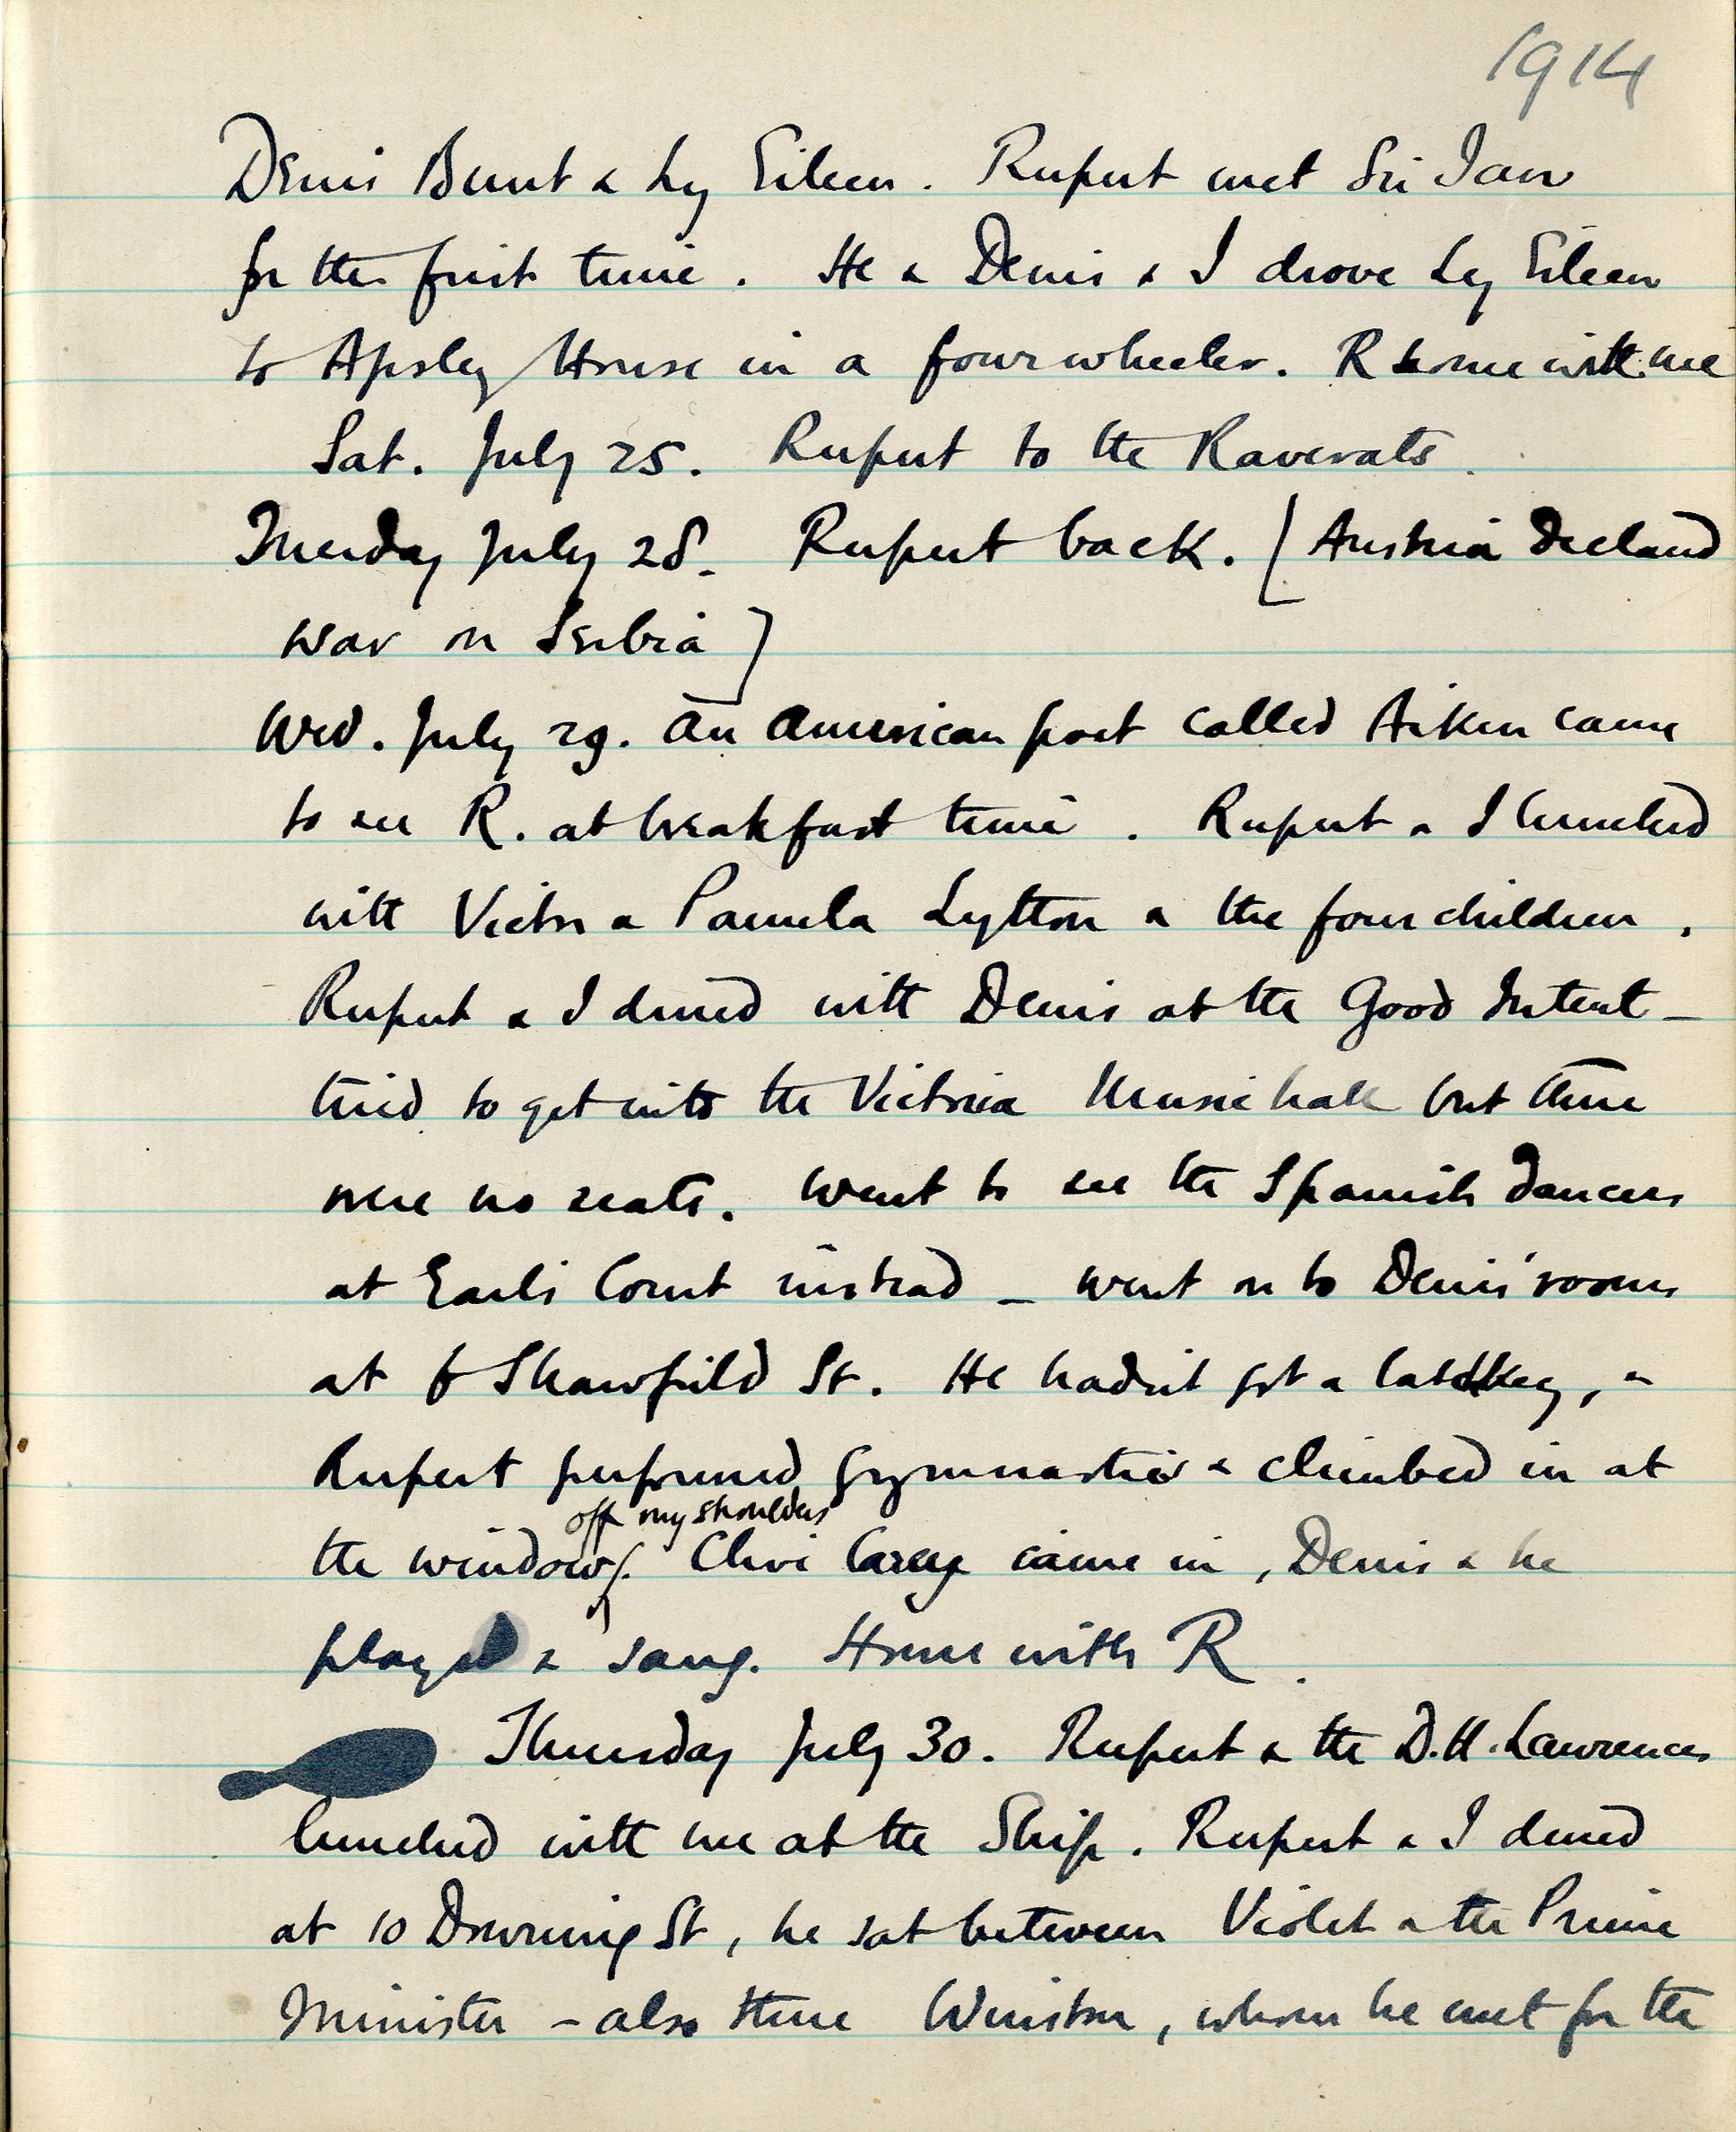 1914
Denis Burnt & Ly Eileen. Rupert met Sir Ian
for the first time. He & Denis & I drove Ly Eileen
to Apsley House in a fourwheeler. R home with me
Sat. July 25. Rupert to the Raverats.
Tuesday July 28. Rupert back. [Austria declared
war on Serbia]
Wed. July 29. An American poet called Aiken came
to see R. at breakfast time. Rupert & I lunched
with Victor & Pamela Lytton & the four children.
Rupert & I dined with Denis at the Good Intent –
tried to get into the Victoria Music hall but there
were no seats. Went to see the Spanish dancers
at Earls Court instead – went on to Denis' rooms
at 6 Shawfield St. He hadn't got a latchkey, &
Rupert performed gymnastics & climbed in at
off my shoulders
the window. Clive Carey came in, Denis & he
played & sang. Home with R.
Thursday July 30. Rupert & the D.H. Lawrences
lunched with me at the Ship. Rupert & I dined
at 10 Downing St, he sat between Violet & the Prime
Minister – also there Winston, whom he met for the